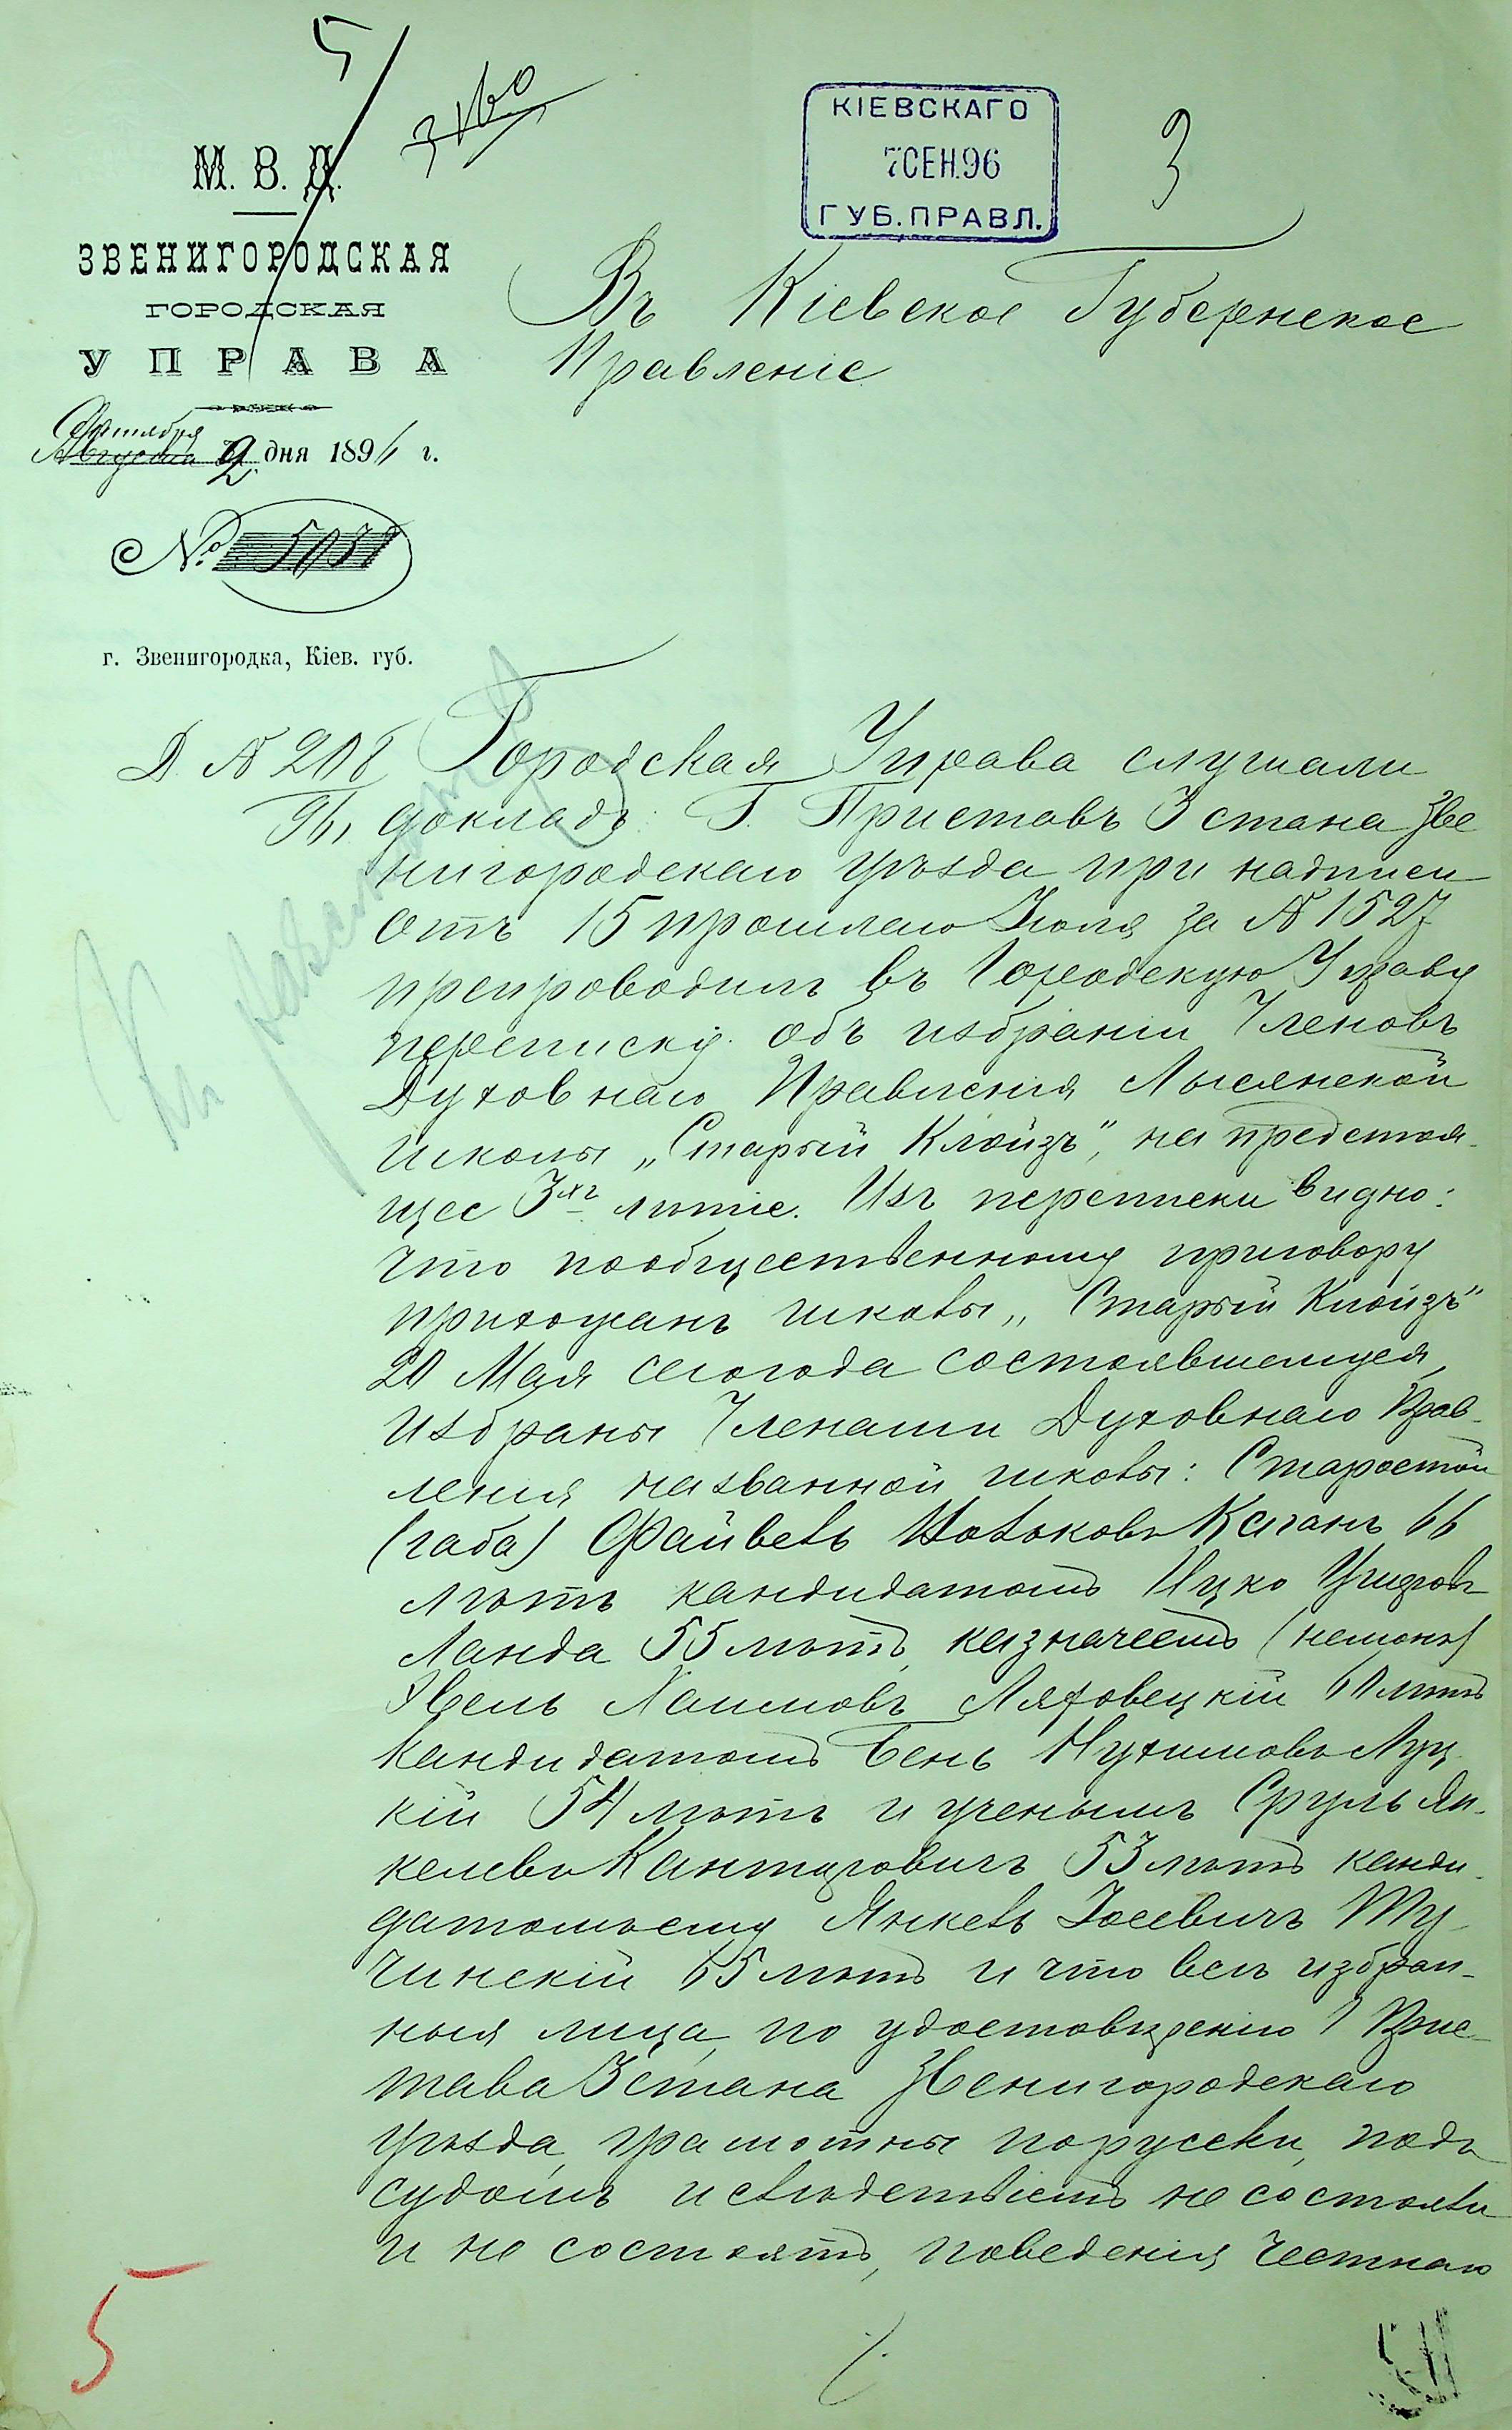 5
КІЕВСКАГО
7 СЕН. 96
ГУБ. ПРАВЛ.
3
М. В. Д.
ЗВЕНИГОРОДСКАЯ
ГОРОДСКАЯ
УПРАВА
Въ Кіевское Губернское
Правленіе
Сентября
Августа 2 дня 1896 г.
№ 5038
г. Звенигородка, Кіев. губ.
Д № 208
96
Городская Управа слушали
докладъ: Г. Приставъ 3 стана Зве
нигородскаго уѣзда при надписи
отъ 15 прошлаго Іюля за № 1527
препроводилъ въ Городскую Управу
переписку объ избраніи Членовъ
Духовнаго Правленія Лысянской
школы „Старый Клойзъ", на предстоя-
щее 3хъ лѣтіе. Изъ переписки видно:
что пообщественному приговору
прихожанъ школы „Старый Клойзъ"
20 Мая сегогода состоявшемуся,
избраны Членами Духовнаго Прав-
ленія названной школы: Старостой
(габа) Файвель Каганъ 66
лѣтъ кандидатомъ Ицко
Ланда 55 лѣтъ, казначеемъ (немонъ)
Хаимовъ Ляховецкій 60 лѣтъ
кандидатомъ Бень Нухимовъ Луц-
кій 54 лѣтъ и ученымъ Сруль Ян-
келевъ Канторовичъ 53 лѣтъ канди-
датомъ ему Янкель Іосевичъ Ту-
чинскій 65 лѣтъ и что всѣ избран-
ныя лица, по удостовѣренію Г Прис-
тава 3 стана Звенигородскаго
уѣзда, грамотны порусски, подъ
судомъ и слѣдствіемъ не состояли
и не состоятъ, поведенія честнаго
5